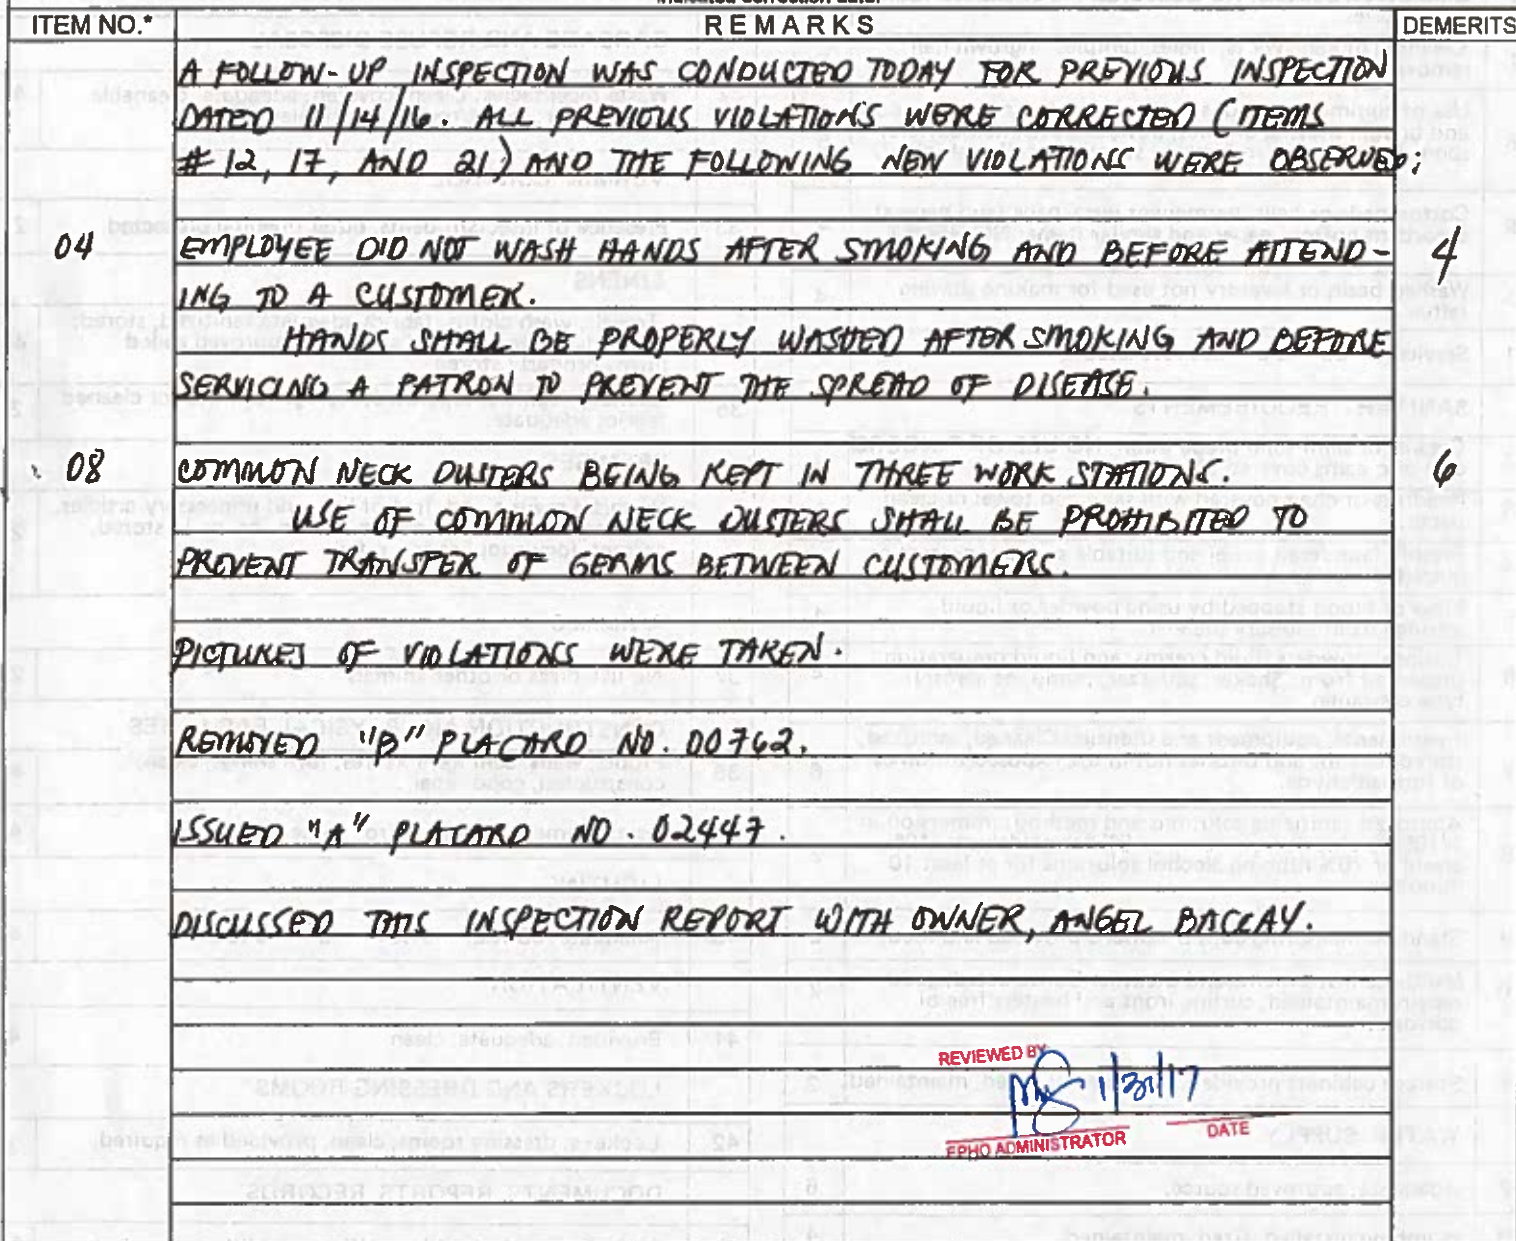 ITEM NO.* REMARKS DEMERITS
A FOLLOW-UP INSPECTION WAS CONDUCTED TODAY FOR PREVIOUS INSPECTION
DATED 11/14/16. ALL PREVIOUS VIOLATIONS WERE CORRECTED (ITEMS
#12, 17, AND 21) AND THE FOLLOWING NEW VIOLATIONS WERE OBSERVED:
04 EMPLOYEE DID NOT WASH HANDS AFTER SMOKING AND BEFORE ATTEND- 4
ING TO A CUSTOMER.
HANDS SHALL BE PROPERLY WASHED AFTER SMOKING AND BEFORE
SERVICING A PATRON TO PREVENT THE SPREAD OF DISEASE.
08 COMMON NECK DUSTERS BEING KEPT IN THREE WORK STATIONS. 6
USE OF COMMON NECK DUSTERS SHALL BE PROHIBITED TO
PREVENT TRANSFER OF GERMS BETWEEN CUSTOMERS.
PICTURES OF VIOLATIONS WERE TAKEN.
REMOVED "B" PLACARD NO. 00762.
ISSUED "A" PLACARD NO. 02447.
DISCUSSED THIS INSPECTION REPORT WITH OWNER, ANGEL BACLAY.
REVIEWED BY
1/31/17
EPHO ADMINISTRATOR DATE